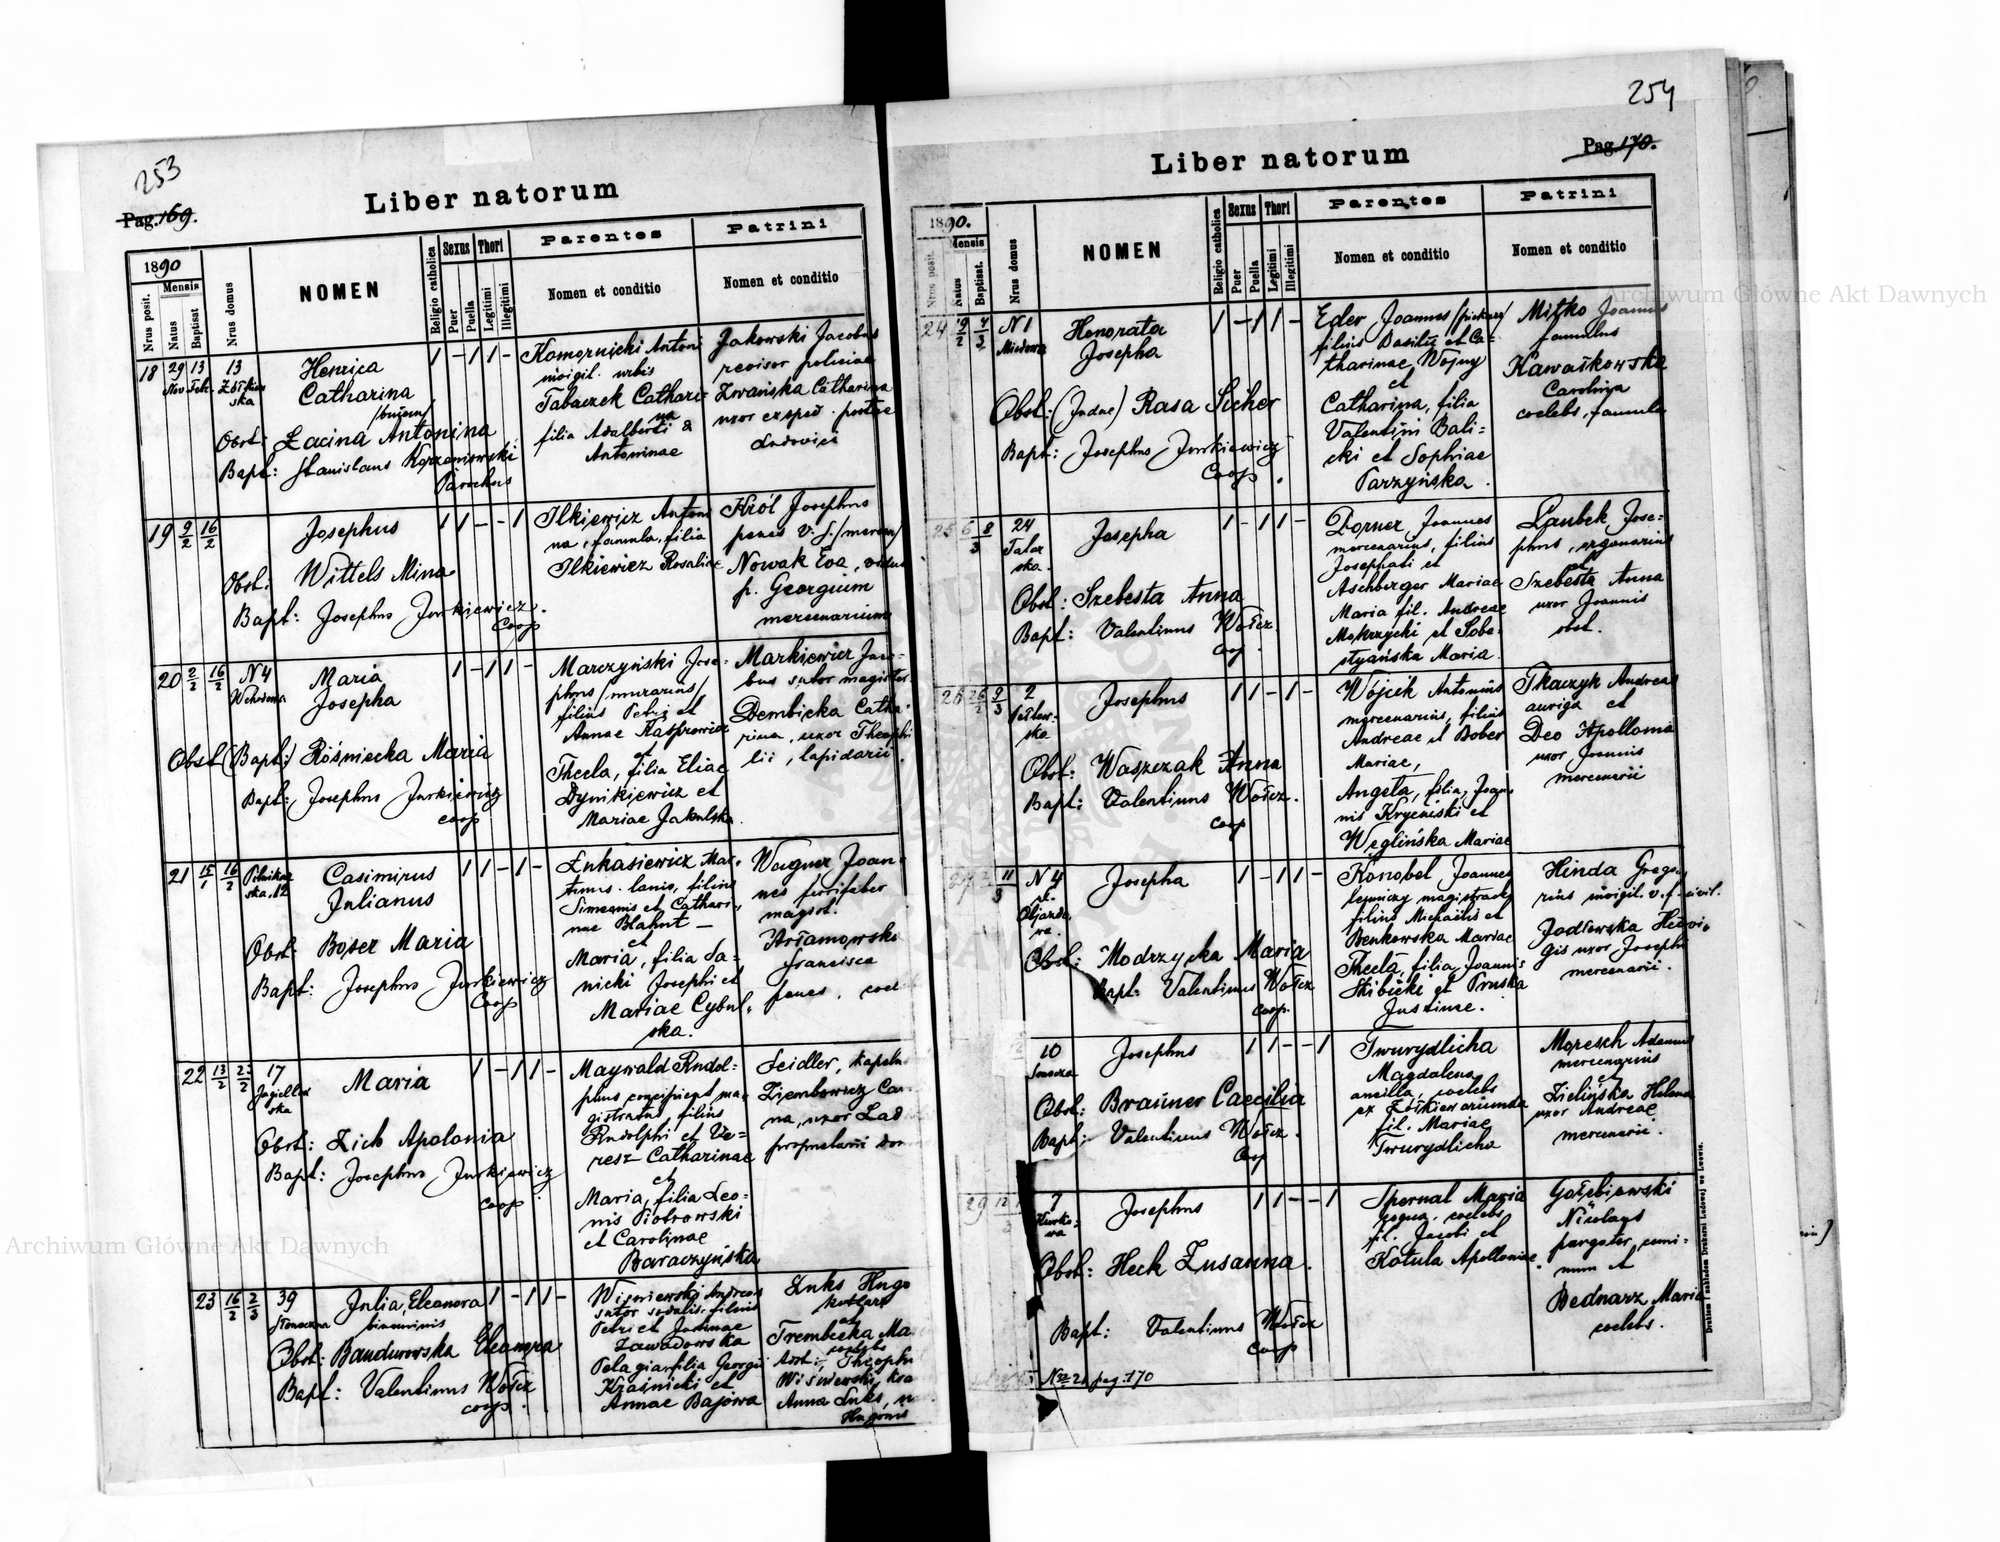 253
Pag. 169.
Liber natorum
1890
Nrus posit.
Mensis
Natus
Baptisat
Nrus domus
NOMEN
Religio catholica
Sexus
Puer
Puella
Thori
Legitimi
Illegitimi
Parentes
Nomen et conditio
Patrini
Nomen et conditio
18 29 Nov 13 Feb. 13
Henrica
Catharina
1 - 1 1 -
Komornicki Antoni
vigil. urbis
Tabaczek Cathari-
na
filia Adalberti &
Antoninae
Jakowski Jacobus
revisor policiae
Catharina
Ludovici
Obst: Antonina
Bapt: Stanislaus Korzeniowski
Parochus
19 9/2 16/2
Josephus
1 1 - - 1
Ilkiewicz Antoni
na, famula, filia
Ilkiewicz Rosaliae
Król Josephus
Nowak Eva, vidua
p. Georgium
mercenarium
Obst: Wittels Mina
Bapt: Josephus Jurkiewicz
Coop
20 2/2 16/2 N 4
Maria
Josepha
1 - 1 1 -
Marczyński Jose-
phus /murarius/
filius Petri et
Annae Kasprowicz
et
Thecla, filia Eliae
Dynikiewicz et
Mariae Jakulska.
Markiewicz Jaco-
bus sutor magister.
Dembicka Catha-
rina, uxor Theophi
lii, lapidarii
Obst (Bapt:) Rośniecka Maria
Bapt: Josephus Jurkiewicz
coop
21 15/1 16/2
Casimirus
Julianus
1 1 - 1 -
Łukasiewicz Mar-
tinus lanio, filius
Simeonis et Cathari-
nae Blahut —
et
Maria, filia Sa-
nicki Josephi et
Mariae Cybul-
ska.
Wagner Joan-
nes ferrifaber
magist.
Francisca
Obst: Boser Maria
Bapt: Josephus Jurkiewicz
Coop
22 13/2 17
Jagielloń
ska
Maria
1 - 1 1 -
Maywald Rudol-
phus concipient ma-
gistratus, filius
Rudolphi et Ve-
resz Catharinae
et
Maria, filia Leo-
nis Piotrowski
et Carolinae
Baraczyńska
Seidler,
Ziembowicz Ca
na, uxor Lad
Obst: Zich Apolonia
Bapt: Josephus Jurkiewicz
coop
23 16/2 2/3 39
Słoneczna
Julia, Eleonora
binominis
1 - 1 1 -
Wiśniewski Andreas
sutor sodalis, filius
Petri et Joannae
Zawadowska
Pelagia filia Georgii
Kraśnicki et
Annae Bajowa
Łuks Hugo
et
Trembecka Ma
Asst:
Anna Łuks,
Hugonis
Obst: Bandurowska Eleonora
Bapt: Valentinus Wołcz
coop.
254
Pag. 170.
Liber natorum
1890.
Nrus posit.
Mensis
Natus
Baptisat.
Nrus domus
NOMEN
Religio catholica
Sexus
Puer
Puella
Thori
Legitimi
Illegitimi
Parentes
Nomen et conditio
Patrini
Nomen et conditio
24 N 1
Miodowa
Honorata
Josepha
1 - 1 1 -
Eder Joannes /piekarz/
filius Basilii et Ca-
tharinae Wojny
et
Catharina, filia
Valentini Bali-
cki et Sophiae
Parzyńska.
Mitko Joannes
famulus
Carolina
coelebs, famula
Obst: (Judae) Rasa Sicher
Bapt: Josephus Jurkiewicz
Coop.
25 6/3 8 24
Tatar
ska.
Josepha
1 - 1 1 -
Dorner, Joannes
mercenarius, filius
Josephati et
Aschberger Mariae
Maria fil. Andreae
Mokrzycki et Sobe-
styańska Maria.
Laubek, Jose-
phus, organarius
et
Szebesta Anna
uxor Joannis
obst.
Obst: Szebesta Anna
Bapt: Valentinus Wołcz.
Coop.
26 26/2 9/3 2
Josephus
1 1 - 1 -
Wójcik Antonius
mercenarius, filius
Andreae et Bober
Mariae,
Angela, filia, Joan
nis Kryciński et
Węglińska Mariae
Tkaczyk Andreas
auriga et
Deo Apollonia
uxor Joannis
mercenarii
Obst: Waszczak Anna
Bapt: Valentinus Wołcz.
coop
N 4
Josepha
1 - 1 1 -
Konobel Joannes
leśniczy magistrack
filius Michaelis et
Benkowska Mariae
Thecla, filia Joannis
Skibicki et Pruska
Justinae.
Hinda Grego-
rius vigil. v. f. civil.
Jodłowska Hedvi-
gis uxor Josephi
mercenarii.
Obst: Modrzycka Maria
Bapt: Valentinus Wołcz
coop.
10
Josephus
1 1 - - 1
Twurydlicha
Magdalena
ancilla, coelebs
fil. Mariae
Twurydlicha
Moresch Adamus
mercenarius
et
Zielińska Helena
uxor Andreae
mercenarii.
Obst: Brauner Caecilia
Bapt: Valentinus Wołcz.
Coop
29 7
Kurko-
wa
Josephus
1 1 - - 1
Spernal Maria
coqua, coelebs
fil. Jacobi et
Kotula Apolloniae.
Gołębiowski
Nicolaus
et
Bednarz Maria
coelebs.
Obst: Heck Zusanna.
Bapt: Valentinus Wołcz
coop
pag. 170
Drukiem i nakładem Drukarni Ludowej we Lwowie.
Archiwum Główne Akt Dawnych
Archiwum Główne Akt Dawnych